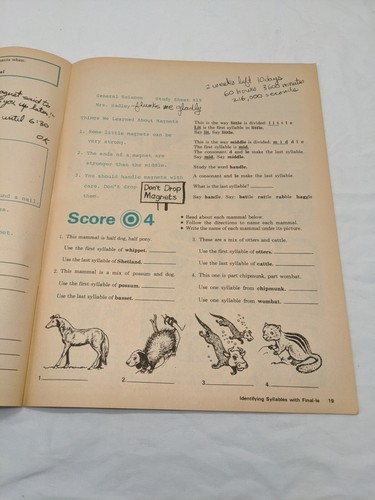 until 6:30
OK
2 weeks left 10 days
60 hours 3600 minutes
216,000 seconds
General Science Study Sheet #14
Mrs. Hadley flunks me gladly
Things We Learned About Magnets
1. Some little magnets can be
very strong.
2. The ends of a magnet are
stronger than the middle.
3. You should handle magnets with
care. Don't drop
Don't Drop
Magnets
This is the way little is divided: l i t t l e
Lit is the first syllable in little.
Say lit. Say little.
This is the way middle is divided: m i d d l e
The first syllable is mid.
The consonant d and le make the last syllable.
Say mid. Say middle.
Study the word handle.
A consonant and le make the last syllable.
What is the last syllable?
Say handle. Say: battle rattle rabble haggle
Score 4
• Read about each mammal below.
• Follow the directions to name each mammal.
• Write the name of each mammal under its picture.
1. This mammal is half dog, half pony.
Use the first syllable of whippet.
Use the last syllable of Shetland.
2. This mammal is a mix of possum and dog.
Use the first syllable of possum.
Use the last syllable of basset.
3. These are a mix of otters and cattle.
Use the first syllable of otters.
Use the last syllable of cattle.
4. This one is part chipmunk, part wombat.
Use one syllable from chipmunk.
Use one syllable from wombat.
1.
2.
3.
4.
Identifying Syllables with Final-le 19